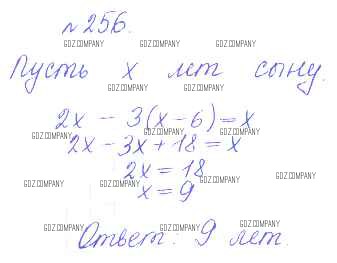 №256.
GDZ.COMPANY GDZ.COMPANY GDZ.COMPANY
Пусть x лет сыну.
GDZ.COMPANY GDZ.COMPANY
2x - 3(x-6) = x
GDZ.COMPANY GDZ.COMPANY GDZ.COMPANY
2x - 3x + 18 = x
2x = 18
GDZ.COMPANY GDZ.COMPANY GDZ.COMPANY GDZ.COMPANY
x = 9
GDZ.COMPANY GDZ.COMPANY GDZ.COMPANY
Ответ: 9 лет.